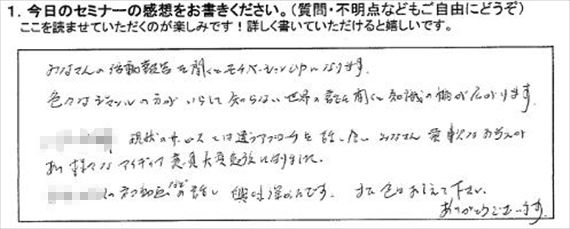 1. 今日のセミナーの感想をお書きください。(質問・不明点などもご自由にどうぞ)
ここを読ませていただくのが楽しみです!詳しく書いていただけると嬉しいです。
みなさんの活動報告を聞くとモチベーションUPになります。
色々なジャンルの方がいらして知らない世界の話を聞くと知識の幅が広がります。
現状のサービスとは違うアプローチを話し合い みなさん 柔軟なお考えが
あり 様々なアイディア 意見 大変勉強になりました。
の 動画 の話し 興味深かったです。また色々おしえて下さい。
ありがとうございます。